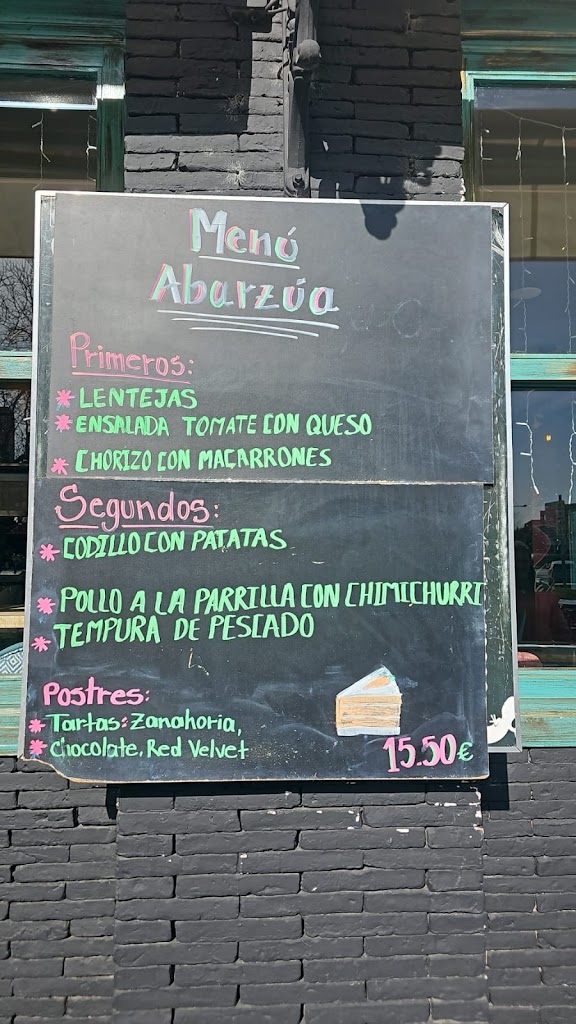 Menú
Abarzúa
Primeros:
* LENTEJAS
* ENSALADA TOMATE CON QUESO
* CHORIZO CON MACARRONES
Segundos:
* CODILLO CON PATATAS
* POLLO A LA PARRILLA CON CHIMICHURRI
* TEMPURA DE PESCADO
Postres:
* Tartas: Zanahoria,
* Chocolate, Red Velvet
15.50€